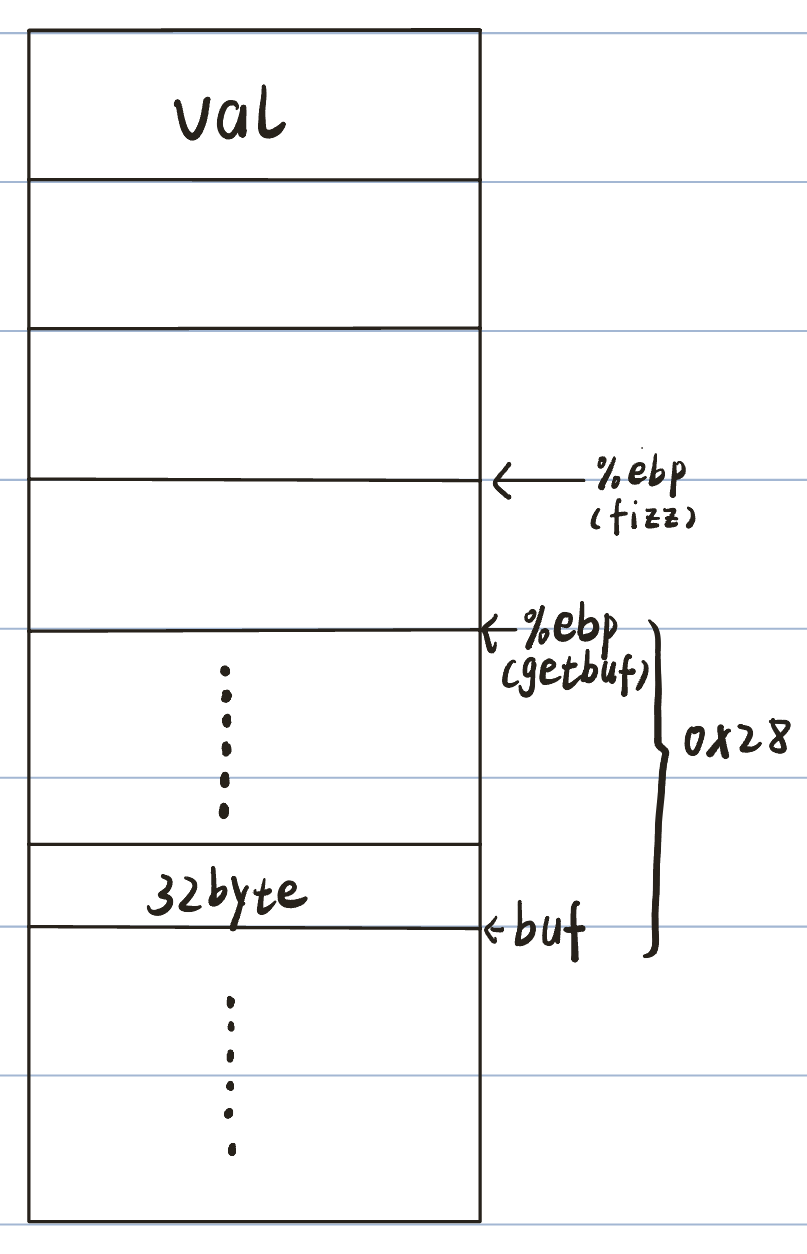 val
%ebp
(fizz)
%ebp
(getbuf)
0x28
32byte
buf